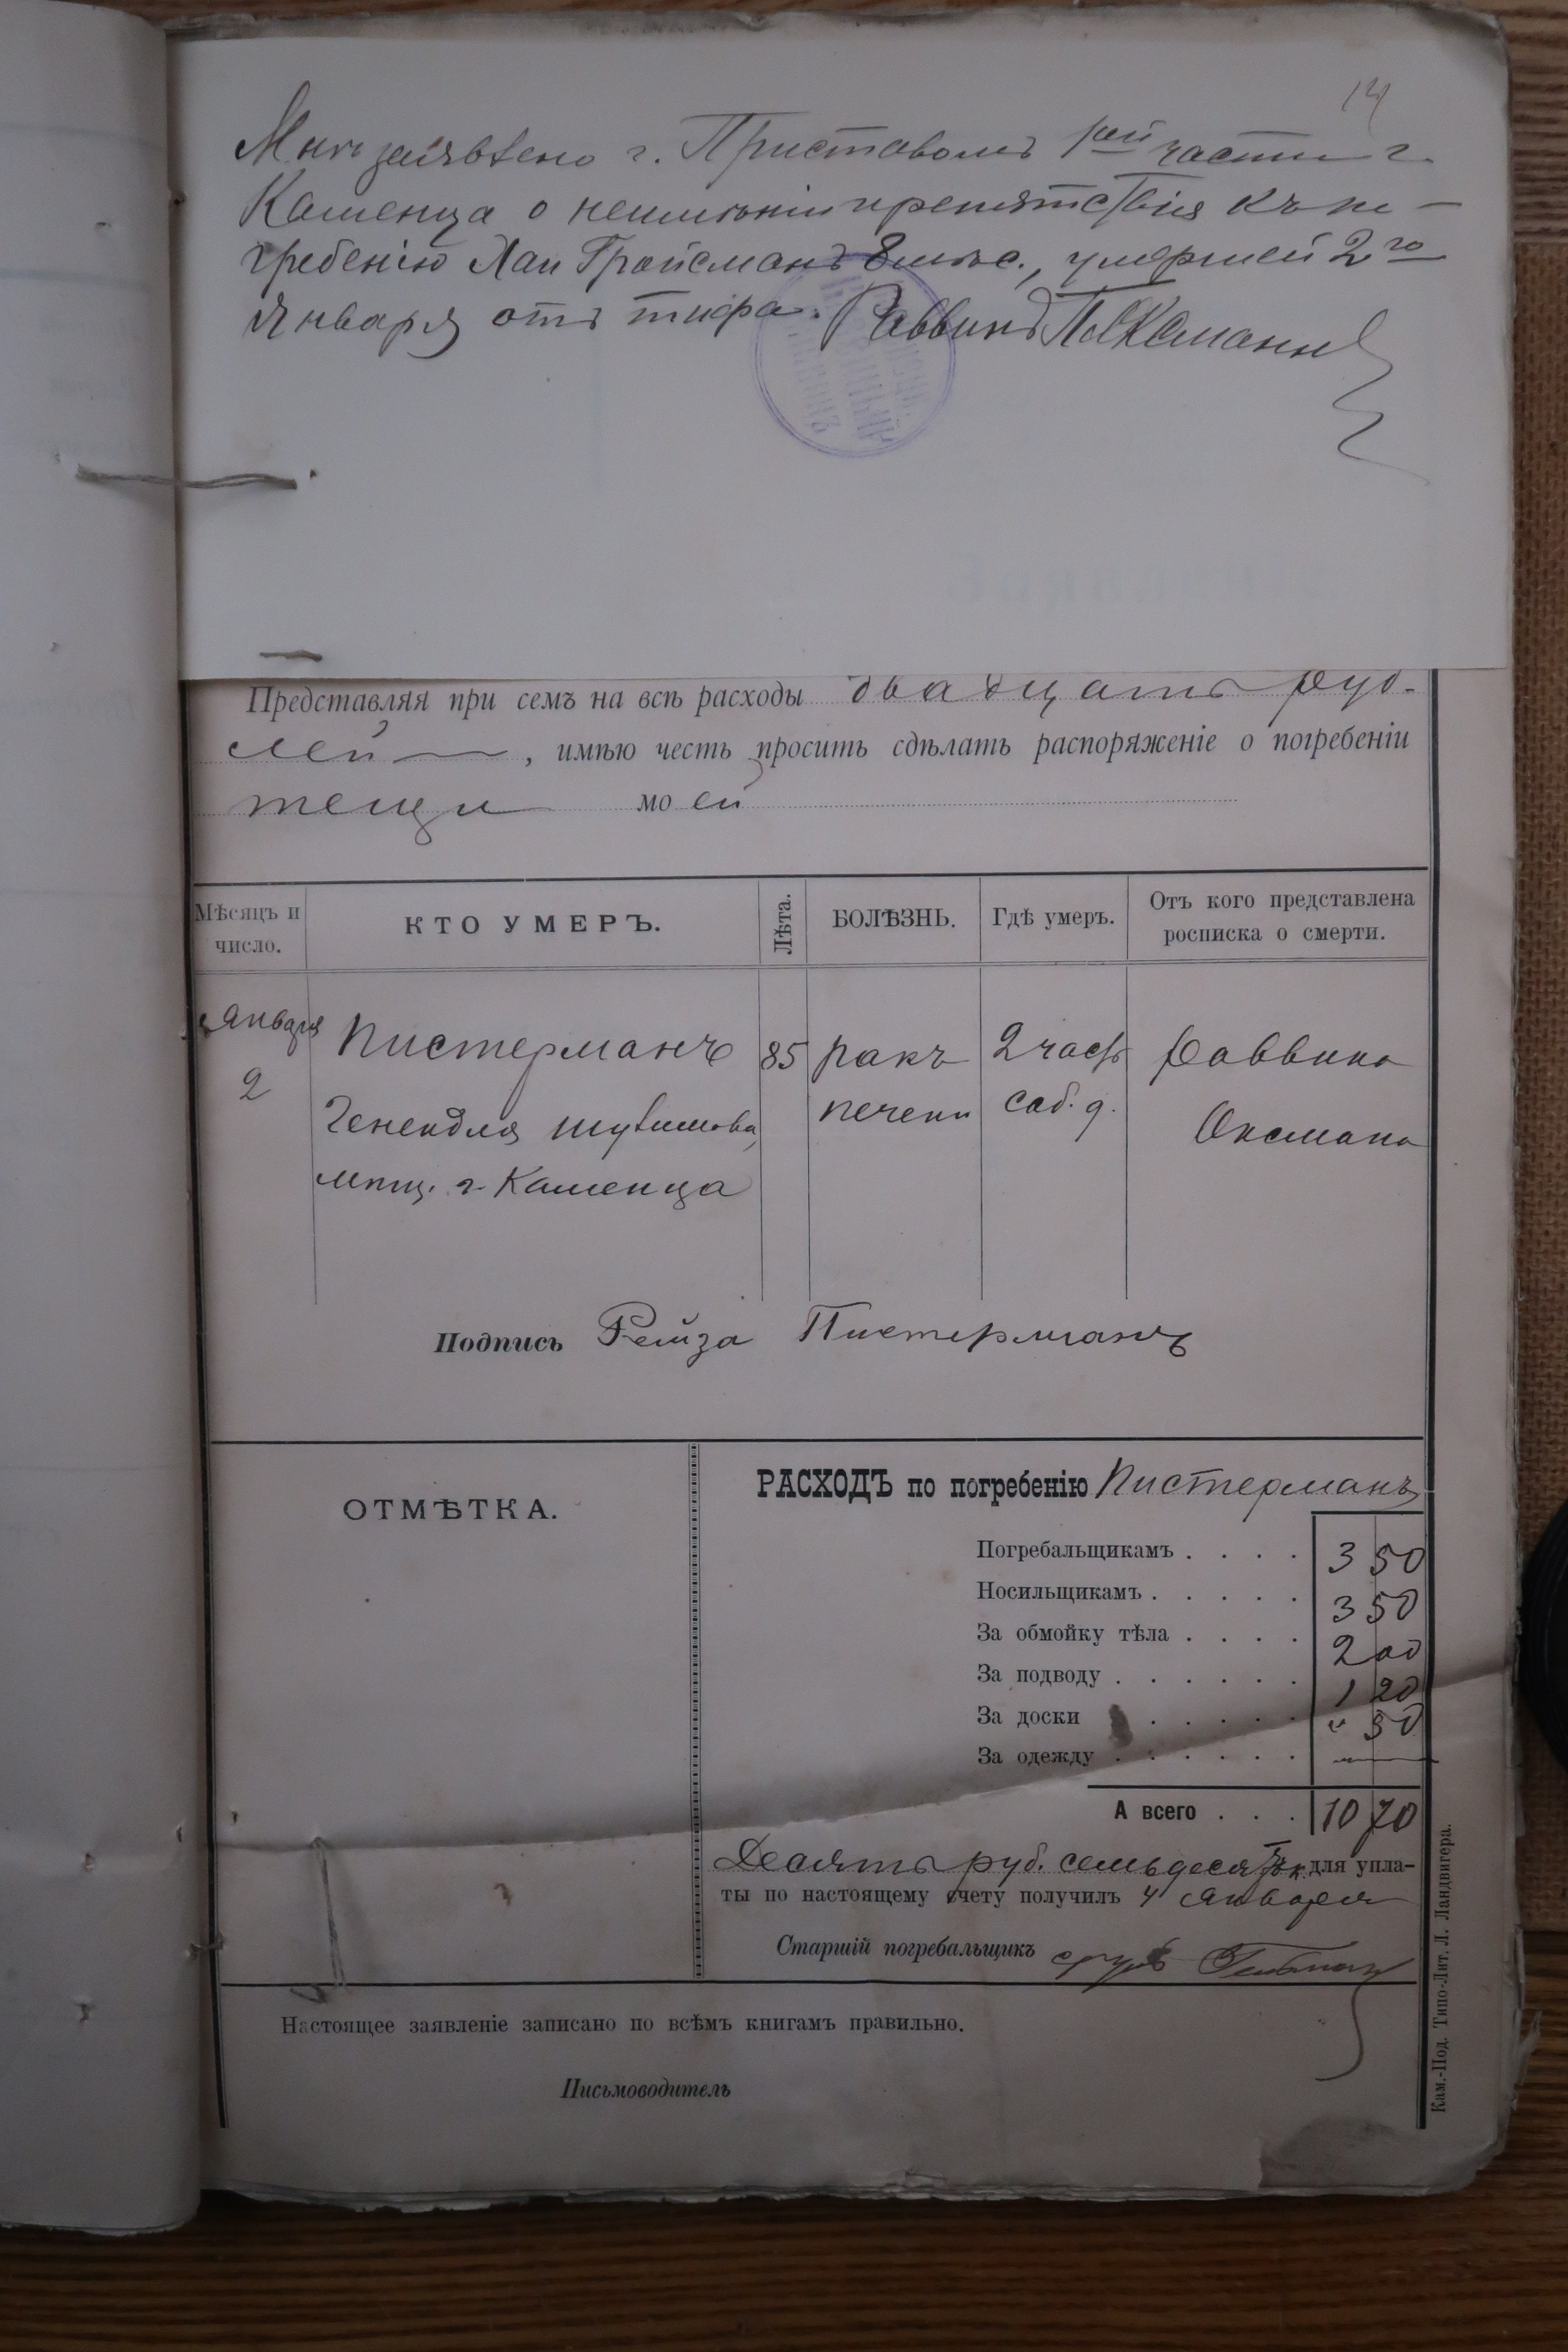 14
Мнѣ заявлено г. Приставомъ 1ой части г.
Каменца о неимѣніи препятствія къ по-
гребенію Хаи Гройсманъ 8 мѣс., умершей 2го
Января отъ тифа. Раввинъ
Представляя при семъ на всѣ расходы двадцать руб-
лей, имѣю честь просить сдѣлать распоряженіе о погребеніи
тещи моей
Мѣсяцъ и число. КТО УМЕРЪ. Лѣта. БОЛѢЗНЬ. Гдѣ умеръ. Отъ кого представлена росписка о смерти.
Января Пистерманъ 85 ракъ 2 част Раввина
2 Генендля печени Оксмана
мѣщ. г. Каменца
Подпись Рейза Пистерманъ
ОТМѢТКА.
РАСХОДЪ по погребенію Пистерманъ
Погребальщикамъ . . . . 3 50
Носильщикамъ . . . . . 3 50
За обмойку тѣла . . . . 2 00
За подводу . . . . . . 1 20
За доски . . . . . " 50
За одежду . . . . . . —
А всего . . . 10 70
Десять руб. семьдесятъ к. для упла-
ты по настоящему счету получилъ 4 Января
Старшій погребальщикъ
Настоящее заявленіе записано по всѣмъ книгамъ правильно.
Письмоводитель
Кам.-Под. Типо-Лит. Л. Ландвигера.